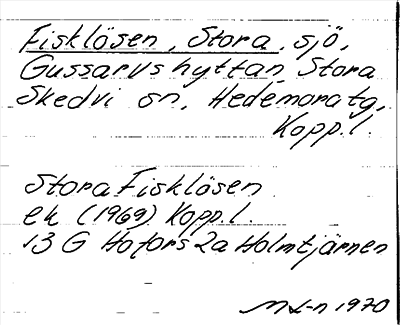 Fisklösen, Stora, sjö,
Gussarvshyttan, Stora
Skedvi sn, Hedemora tg,
Kopp.l.
Stora Fisklösen
ek (1969) Kopp.l.
13 G Hofors 2a Holmtjärnen
1970